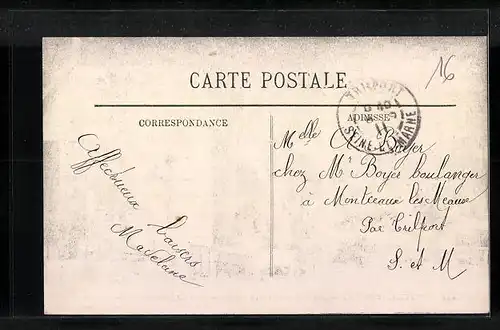 16
CARTE POSTALE
CORRESPONDANCE
ADRESSE
SEINE-ET-MARNE
Affectueux
baisers
Madeleine
Melle A. Boyer
chez M Boyer boulanger
à Montceaux les Meaux
Par Trilport
S. et M